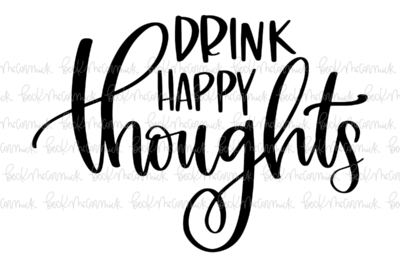 DRINK
HAPPY
thoughts